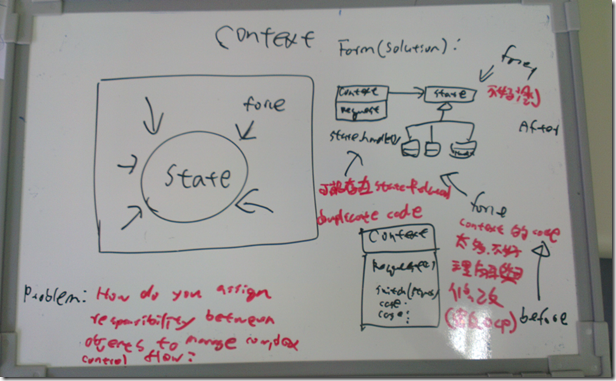 Context
Form (Solution):
force
force
Context
State
Request
After
State
state.handle()
force
duplicate code
Context 的 code
Context
太多,不好
Request()
switch(state)
修改
case:
case:
before
Problem: How do you assign
responsibility between
objects to manage complex
control flow?